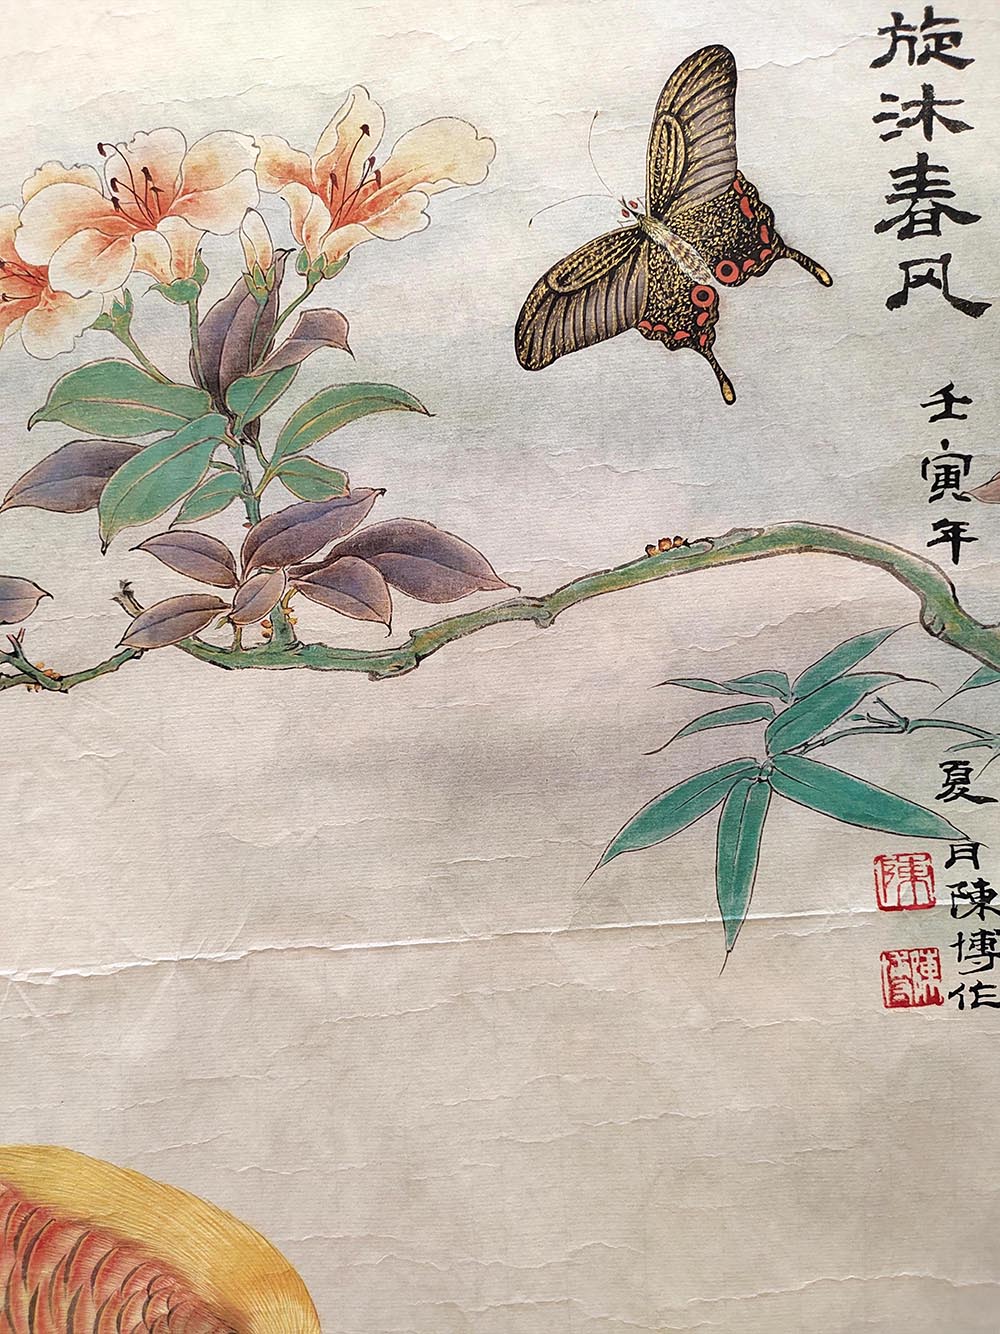 旋沐春风
壬寅年夏月陳博作
陳
陳博